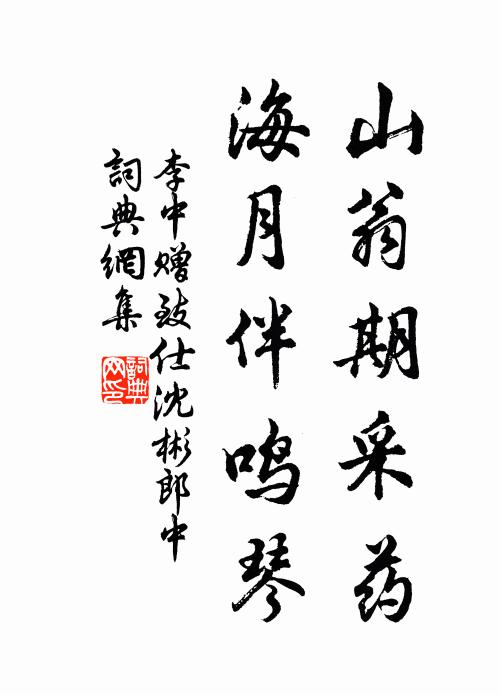 山翁期采药
海月伴鸣琴
李中赠致仕沈彬郎中
詞典網集
詞典网印